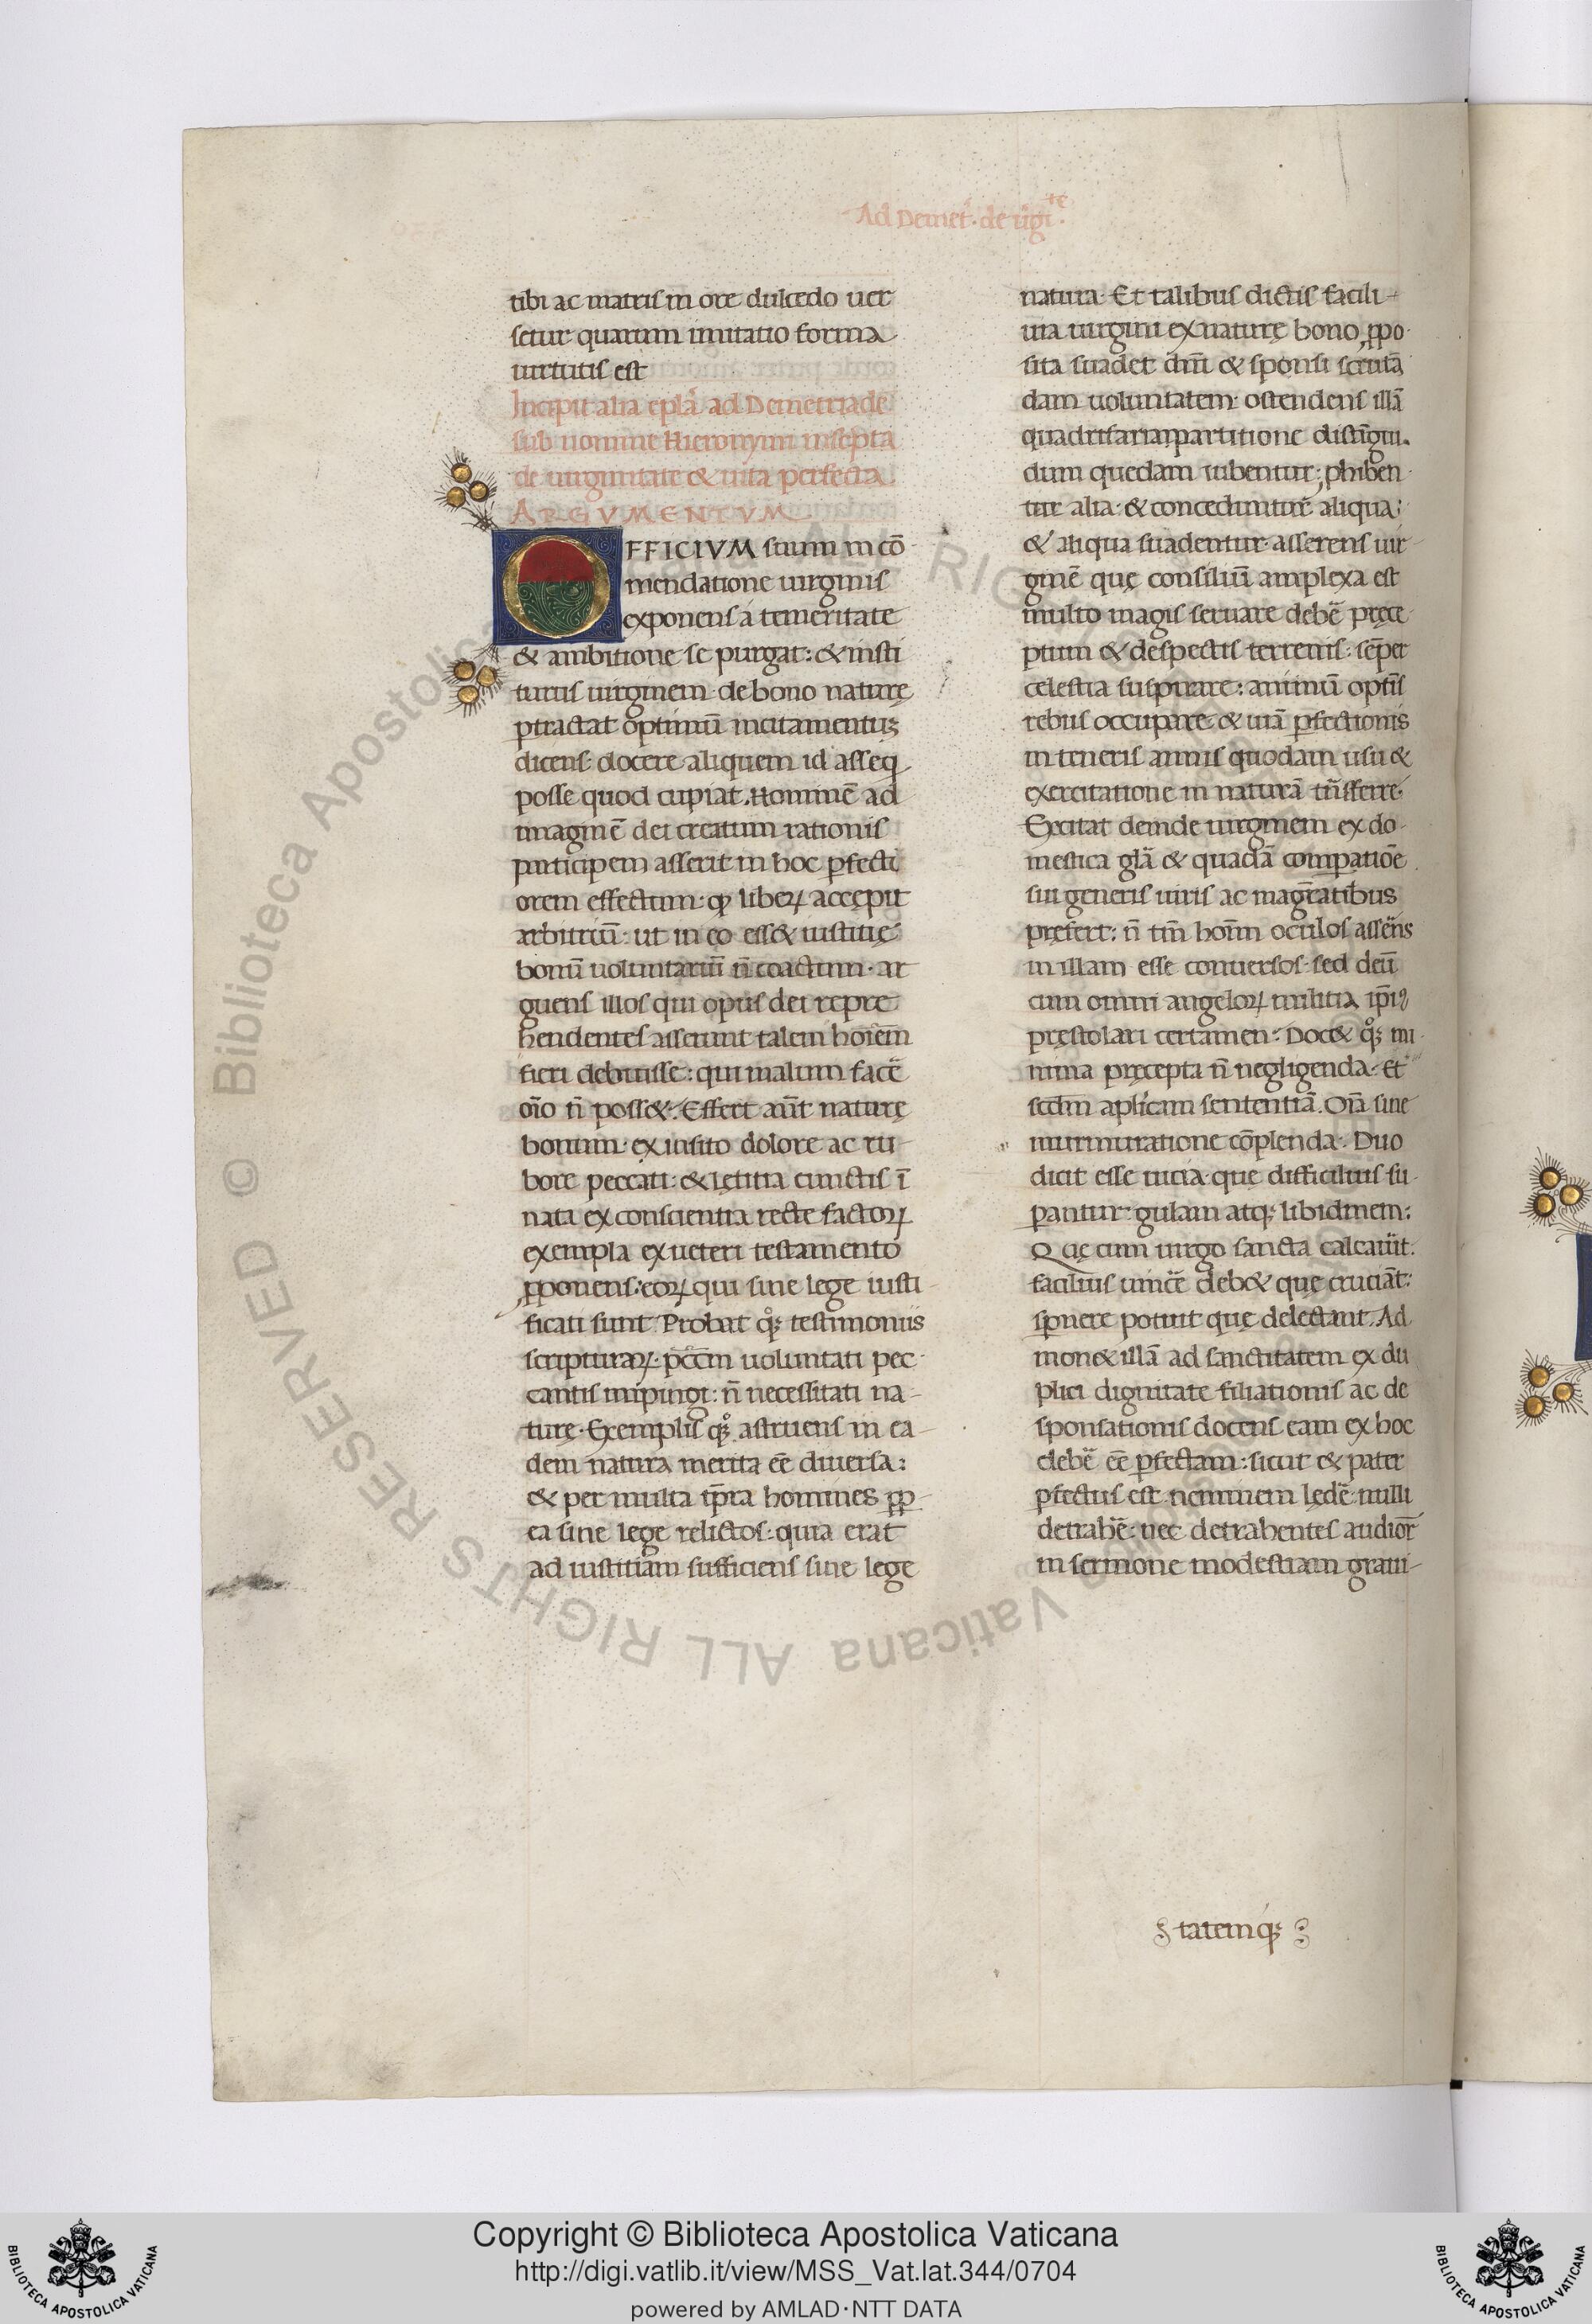 Ad Demet. de ũgĩte.
tibi ac matris in ore dulcedo uer
setur quarum imitatio forma
uirtutis est
Incipit alia epl̃a ad Demetriade
sub nomine Hieronymi inscpta
de uirginitate & uita perfecta.
ARGVMENTVM
OFFICIVM suum in cõ
mendatione uirginis
exponens a temeritate
& ambitione se purgat: & insti
turus uirginem de bono naturę
ptractat optimũ incitamentuʒ
dicens docere aliquem id asseq
posse quod cupiat. Hominẽ ad
imaginẽ dei creatum rationis
participem asserit in hoc ꝑfecti
orem effectum: ꝙ liberꝝ accępit
arbitriũ: ut in eo ess& iustitię
bonũ uoluntariũ ñ coactum. ar
guens illos qui opus dei repre
hendentes asserunt talem hoĩem
fieri debuisse: qui malum facẽ
oĩo ñ poss&. Effert aũt naturę
bonum ex insito dolore ac ru-
bore peccati: & lętitia cunctis ĩ
nata ex conscientia recte factoꝝ
exempla ex ueteri testamento
ꝓponens: eoꝝ qui sine lege iusti-
ficati sunt. Probat qͦꝫ testimoniis
scripturaꝝ. pccm̃ uoluntati pec-
cantis impingi: ñ necessitati na-
turę. Exemplis qͦꝫ astruens in ea-
dem natura merita eẽ diuersa:
& per multa tp̃ra homines ꝓp-
ea sine lege relictos: quia erat
ad iustitiam sufficiens sine lege
natura. Et talibus dictis facili-
uia uirgini ex naturę bono ꝓpo-
sita suadet dñi & sponsi scrutã
dam uoluntatem. ostendens illã
quadrifaria partitione distĩgui.
dum quedam iubentur; ꝓhiben-
tur alia. & conceduntur aliqua:
& aliqua suadentur. asserens uir
ginẽ quę consiliũ amplexa est
multo magis seruare debẽ pręce-
ptum & despectis terrenis. sẽper
celestia suspirare: animũ optĩs
rebus occupare & uiã ꝑfectionis
in teneris annis quodam usu &
exercitatione in naturã trãsferre.
Excitat deinde uirginem ex do-
mestica glã & quadã comparatiõe
sui generis uiris ac magr̃atibus
pręfert: ñ tm̃ hoĩm oculos assẽns
in illam esse conuersos. sed deũ
cum omni angeloꝝ militia ip̃iꝰ
pręstolari certamen. Doc& qͦꝫ mi-
nima pręcepta ñ negligenda. Et
scdm̃ aplicam sententiã. Oĩa sine
murmuratione cõplenda. Duo
dicit esse iucia que difficilius su-
ꝑantur. gulam atqꝫ libidinem:
Quę cum uirgo sancta calcauĩt.
facilius uincẽ deb& que cruciãt:
spnere potuit quę delectant. Ad
mon& illã ad sanctitatem ex du
plici dignitate filiationis ac de
sponsationis docens eam ex hoc
debẽ eẽ ꝑfectam: sicut & pater
ꝑfectus est. neminem lędẽ: nulli
detrahẽ: nec detrahentes audior̃
in sermone modestiam graui-
tatemqꝫ
© Biblioteca Apostolica Vaticana ALL RIGHTS RESERVED
Copyright © Biblioteca Apostolica Vaticana
http://digi.vatlib.it/view/MSS_Vat.lat.344/0704
powered by AMLAD·NTT DATA
BIBLIOTECA APOSTOLICA VATICANA
BIBLIOTECA APOSTOLICA VATICANA